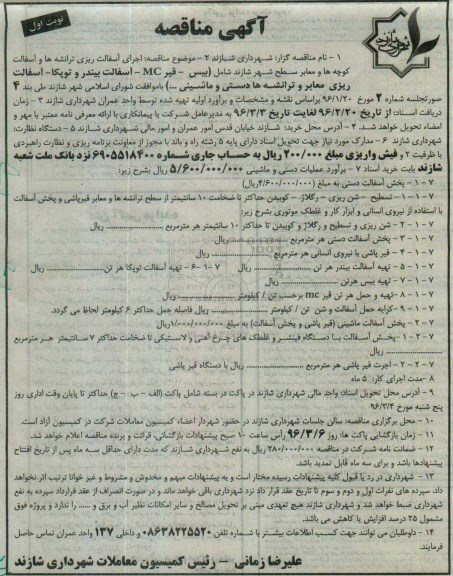 نوبت اول
آگهی مناقصه
۱ – نام مناقصه گزار: شهرداری شازند ۲ – موضوع مناقصه: اجرای آسفالت ریزی ترانشه ها و آسفالت
کوچه ها و معابر سطح شهر شازند شامل (بیس – قیر MC – آسفالت بیندر و توپکا – آسفالت
ریزی معابر و ترانشه ها دستی و ماشینی ...) باموافقت شورای اسلامی شهر شازند طی بند ۴
صورتجلسه شماره ۲ مورخ ۹۶/۱/۲۰ براساس نقشه و مشخصات و برآورد اولیه تهیه شده توسط واحد عمران شهرداری شازند ۳ – زمان
دریافت اسناد: از تاریخ ۹۶/۲/۲۰ لغایت تاریخ ۹۶/۳/۳ به مدیرعامل شرکت یا پیمانکاری با ارائه معرفی نامه معتبر یا مهر و
امضاء تحویل خواهد شد. ۴ – آدرس محل خرید: شازند خیابان قدس امور عمران و امور مالی شهرداری شازند ۵ – دستگاه نظارت:
شهرداری شازند ۶ – مدارک مورد نیاز جهت تحویل اسناد دارای پایه ۵ رشته راه و باند با مجوز از معاونت برنامه ریزی و نظارت راهبردی
با ظرفیت ۲ و فیش واریزی مبلغ ۲۰۰/۰۰۰ ریال به حساب جاری شماره ۶۹۰۵۵۱۸۴۰۰ نزد بانک ملت شعبه
شازند بابت خرید اسناد ۷ – برآورد عملیات دستی و ماشینی ۵/۶۰۰/۰۰۰/۰۰۰ ریال بشرح زیر:
۷ – ۱ – پخش آسفالت دستی به مبلغ (۴/۶۰۰/۰۰۰/۰۰۰ریال)
۷ – ۱ – ۱ – تسطیح – شن ریزی – رگلاژ – کوبیدن حداکثر تا ضخامت ۱۰ سانتیمتر از سطح ترانشه ها و معابر قیرپاشی و پخش آسفالت
با استفاده از نیروی انسانی و ابزار کار و غلطک موتوری بشرح زیر:
۷ – ۱ – ۲ – شن ریزی و تسطیح و رگلاژ و کوبیدن تا حداکثر ۱۰ سانتیمتر هر مترمربع ........ ریال
۷ – ۱ – ۳ – پخش آسفالت دستی هر مترمربع ........ ریال
۷ – ۱ – ۴ – قیر پاشی با نیروی انسانی هر مترمربع ........ ریال
۷ – ۱ – ۵ – تهیه آسفالت بیندر هر تن ........ ریال ۷ – ۱ – ۶ – تهیه آسفالت توپکا هر تن ........ ریال
۷ – ۱ – ۷ – تهیه بیس هرتن ........ ریال
۷ – ۱ – ۸ – تهیه و حمل هر تن قیر mc برحسب تن / کیلومتر ........ ریال
۷ – ۱ – ۹ – کرایه حمل آسفالت و شن تن / کیلومتر ........ ریال فاصله حمل حداکثر ۶ کیلومتر لحاظ می گردد.
۷ – ۲ – پخش آسفالت ماشینی (قیر پاشی و پخش آسفالت) به مبلغ ۱/۰۰۰/۰۰۰/۰۰۰ریال
۷ – ۲ – ۱ –پخش آسفالت با دستگاه فینشر و غلطک های چرخ آهنی و لاستیکی تا ضخامت حداکثر ۷ سانتیمتر هر مترمربع
........ ریال
۷ – ۲ – ۲ – اجرت قیر پاشی هر مترمربع ........ ریال با دستگاه قیر پاشی
۸ –مدت اجرای کار: ۵ ماه
۹ – آدرس محل تحویل اسناد: واحد مالی شهرداری شازند در پاکت در بسته شامل پاکت (الف – ب – ج) حداکثر تا پایان وقت اداری روز
پنج شنبه مورخ ۹۶/۳/۴
۱۰ – محل برگزاری مناقصه: سالن جلسات شهرداری شازند در حضور شهردار اعضاء کمیسیون معاملات شرکت در کمیسیون آزاد است.
۱۱ – زمان بازگشایی پاکت ها: روز ۹۶/۳/۶ رأس ساعت ۱۰ صبح پیشنهادات بازگشائی، قرائت و برنده مناقصه اعلام خواهد شد.
۱۲ – ضمانت نامه شرکت در مناقصه ۲۸۰/۰۰۰/۰۰۰ ریال به نفع شهرداری شازند که مدت دارای حداقل سه ماه پس از تاریخ افتتاح
پیشنهادها باشد و برای سه ماه قابل تمدید باشد.
۱۳ – شهرداری در رد یا قبول کلیه پیشنهادات رسیده مختار است و به پیشنهادات مبهم و مخدوش و مشروط و غیر خوانا ترتیب اثر نخواهد
داد. سپرده های نفرات اول و دوم و سوم تا تاریخ عقد قرار داد نزد شهرداری باقی خواهد ماند و در صورت انصراف از عقد قرارداد سپرده به نفع
شهرداری ضبط خواهد شد و شهرداری شازند هیچ تعهدی مبنی بر تحویل مصالح و سایر امکانات نظیر آب و برق و ..... را ندارد و پروژه فوق
مشمول ۲۵ درصد افزایش یا کاهش می باشد.
۱۴ – داوطلبان می توانند جهت کسب اطلاعات بیشتر با شماره تلفن ۰۸۶۳۸۲۲۵۵۲۰ و داخلی ۱۳۷ واحد عمران تماس حاصل
فرمایند.
علیرضا زمانی – رئیس کمیسیون معاملات شهرداری شازند